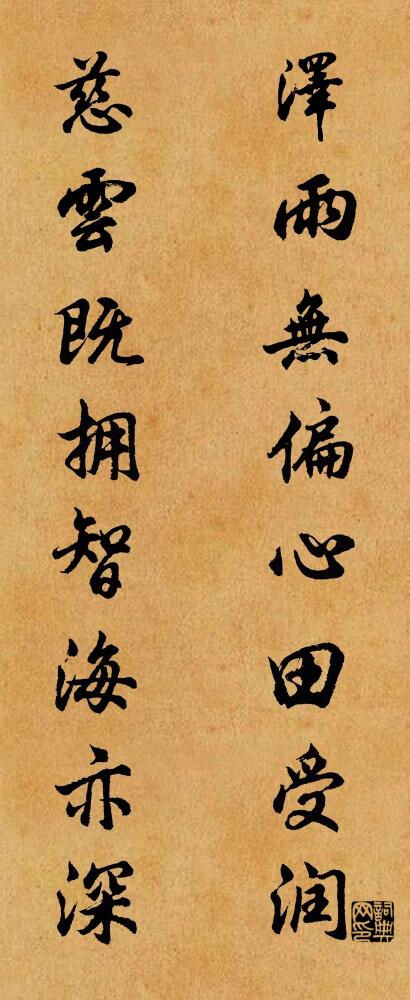 澤雨無偏心田受润
慈雲既拥智海亦深
詞典網印